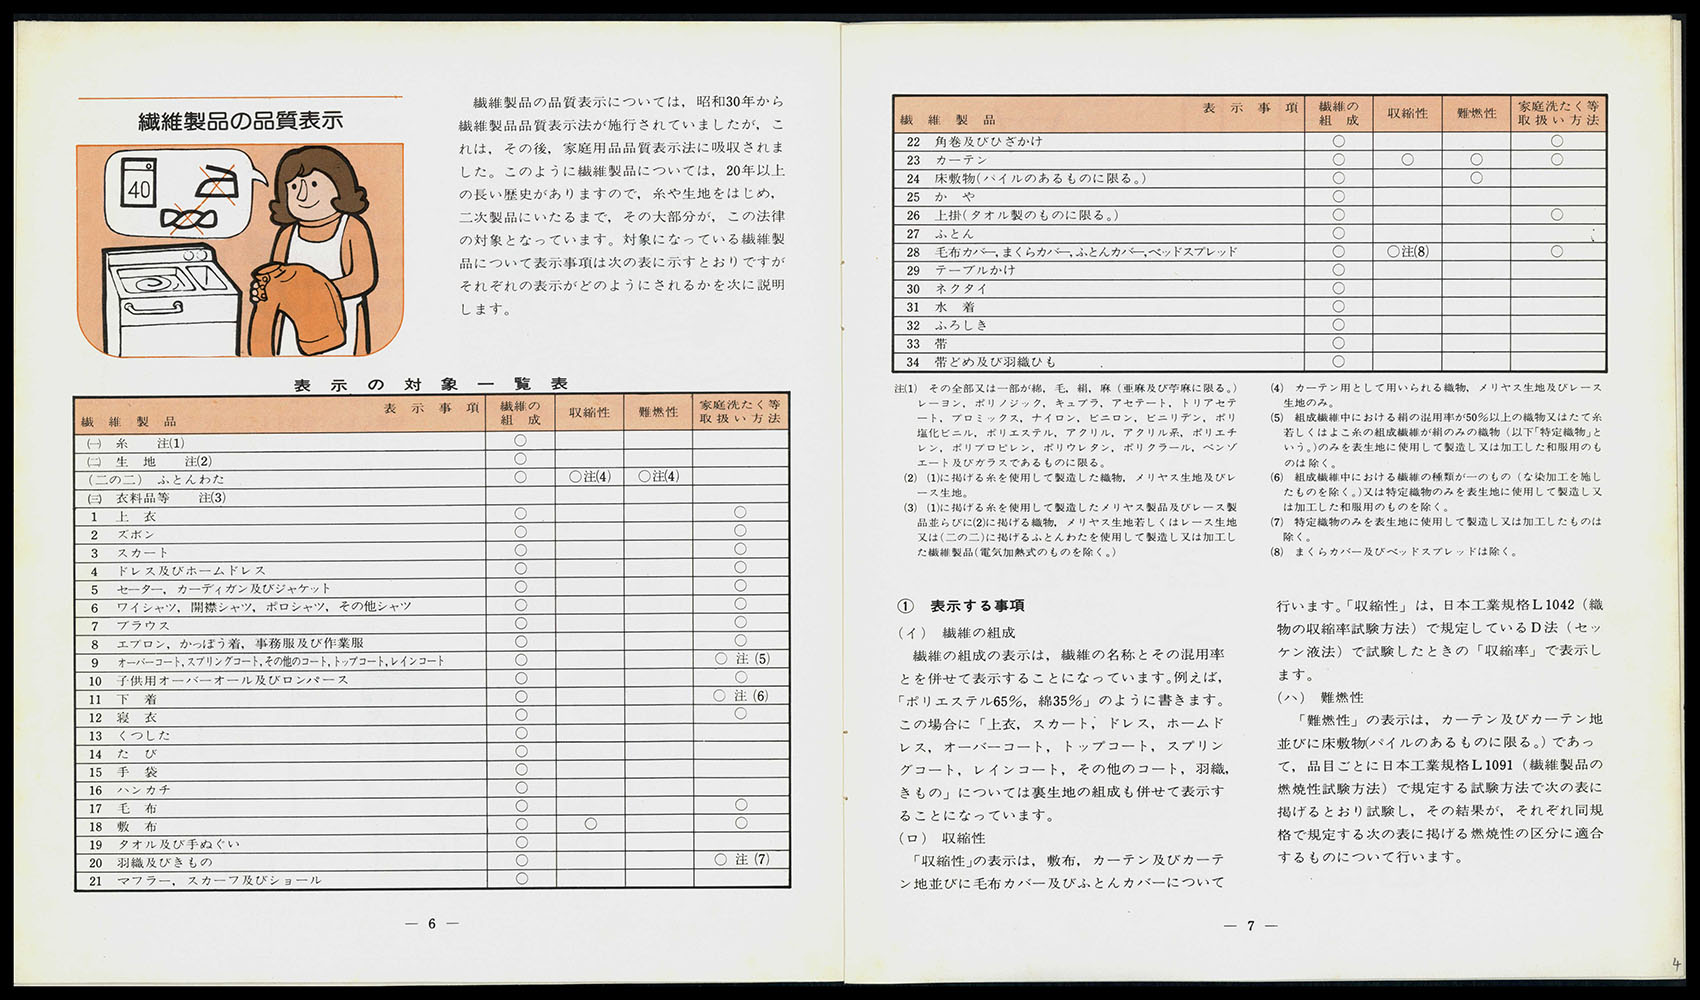 繊維製品の品質表示
40
繊維製品の品質表示については，昭和30年から
繊維製品品質表示法が施行されていましたが，こ
れは，その後，家庭用品品質表示法に吸収されま
した。このように繊維製品については，20年以上
の長い歴史がありますので，糸や生地をはじめ，
二次製品にいたるまで，その大部分が，この法律
の対象となっています。対象になっている繊維製
品について表示事項は次の表に示すとおりですが
それぞれの表示がどのようにされるかを次に説明
します。
表示の対象一覧表
繊維製品 表示事項 繊維の組成 収縮性 難燃性 家庭洗たく等取扱い方法
㈠ 糸 注(1) ○
㈡ 生地 注(2) ○
(二の二) ふとんわた ○ ○注(4) ○注(4)
㈢ 衣料品等 注(3)
1 上衣 ○ ○
2 ズボン ○ ○
3 スカート ○ ○
4 ドレス及びホームドレス ○ ○
5 セーター，カーディガン及びジャケット ○ ○
6 ワイシャツ，開襟シャツ，ポロシャツ，その他シャツ ○ ○
7 ブラウス ○ ○
8 エプロン，かっぽう着，事務服及び作業服 ○ ○
9 オーバーコート，スプリングコート，その他のコート，トップコート，レインコート ○ ○注(5)
10 子供用オーバーオール及びロンパース ○ ○
11 下着 ○ ○注(6)
12 寝衣 ○ ○
13 くつした ○
14 たび ○
15 手袋 ○
16 ハンカチ ○
17 毛布 ○ ○
18 敷布 ○ ○ ○
19 タオル及び手ぬぐい ○
20 羽織及びきもの ○ ○注(7)
21 マフラー，スカーフ及びショール ○
— 6 —
繊維製品 表示事項 繊維の組成 収縮性 難燃性 家庭洗たく等取扱い方法
22 角巻及びひざかけ ○ ○
23 カーテン ○ ○ ○ ○
24 床敷物(パイルのあるものに限る。) ○ ○
25 かや ○
26 上掛(タオル製のものに限る。) ○ ○
27 ふとん ○
28 毛布カバー，まくらカバー，ふとんカバー，ベッドスプレッド ○ ○注(8) ○
29 テーブルかけ ○
30 ネクタイ ○
31 水着 ○
32 ふろしき ○
33 帯 ○
34 帯どめ及び羽織ひも ○
注(1) その全部又は一部が綿，毛，絹，麻（亜麻及び苧麻に限る。）
レーヨン，ポリノジック，キュプラ，アセテート，トリアセテ
ート，プロミックス，ナイロン，ビニロン，ビニリデン，ポリ
塩化ビニル，ポリエステル，アクリル，アクリル系，ポリエチ
レン，ポリプロピレン，ポリウレタン，ポリクラール，ベンゾ
エート及びガラスであるものに限る。
(2) (1)に掲げる糸を使用して製造した織物，メリヤス生地及びレ
ース生地。
(3) (1)に掲げる糸を使用して製造したメリヤス製品及びレース製
品並らびに(2)に掲げる織物，メリヤス生地若しくはレース生地
又は(二の二)に掲げるふとんわたを使用して製造し又は加工し
た繊維製品(電気加熱式のものを除く。)
(4) カーテン用として用いられる織物，メリヤス生地及びレース
生地のみ。
(5) 組成繊維中における絹の混用率が50％以上の織物又はたて糸
若しくはよこ糸の組成繊維が絹のみの織物（以下「特定織物」と
いう。)のみを表生地に使用して製造し又は加工した和服用のも
のは除く。
(6) 組成繊維中における繊維の種類が一のもの（な染加工を施し
たものを除く。)又は特定織物のみを表生地に使用して製造し又
は加工した和服用のものを除く。
(7) 特定織物のみを表生地に使用して製造し又は加工したものは
除く。
(8) まくらカバー及びベッドスプレッドは除く。
① 表示する事項
（イ） 繊維の組成
繊維の組成の表示は，繊維の名称とその混用率
とを併せて表示することになっています。例えば，
「ポリエステル65％，綿35％」のように書きます。
この場合に「上衣，スカート，ドレス，ホームド
レス，オーバーコート，トップコート，スプリン
グコート，レインコート，その他のコート，羽織，
きもの」については裏生地の組成も併せて表示す
ることになっています。
（ロ） 収縮性
「収縮性」の表示は，敷布，カーテン及びカーテ
ン地並びに毛布カバー及びふとんカバーについて
行います。「収縮性」は，日本工業規格L1042（織
物の収縮率試験方法）で規定しているD法（セッ
ケン液法）で試験したときの「収縮率」で表示し
ます。
（ハ） 難燃性
「難燃性」の表示は，カーテン及びカーテン地
並びに床敷物(パイルのあるものに限る。)であっ
て，品目ごとに日本工業規格L1091（繊維製品の
燃焼性試験方法）で規定する試験方法で次の表に
掲げるとおり試験し，その結果が，それぞれ同規
格で規定する次の表に掲げる燃焼性の区分に適合
するものについて行います。
— 7 —
4